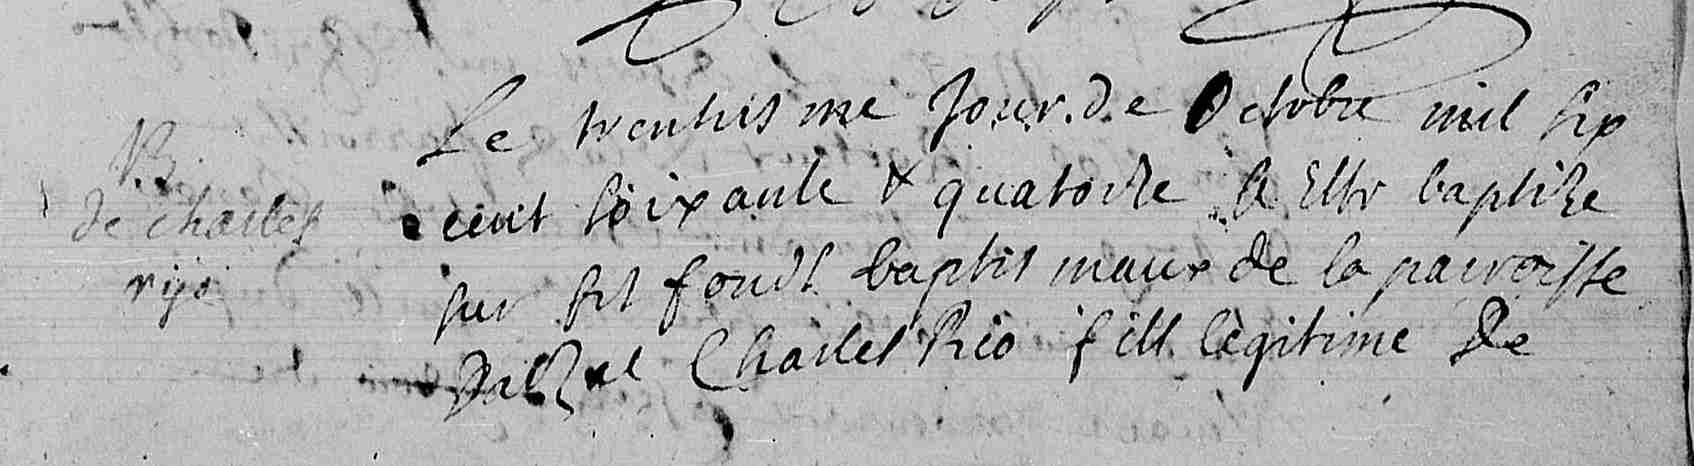 B
de charles
rijo
Le trentiesme Jour de Octobre mil six
cent soixante & quatorze a Estr baptize
sur les fonds baptismaux de la parroisse
Charles Rio fills legitime de